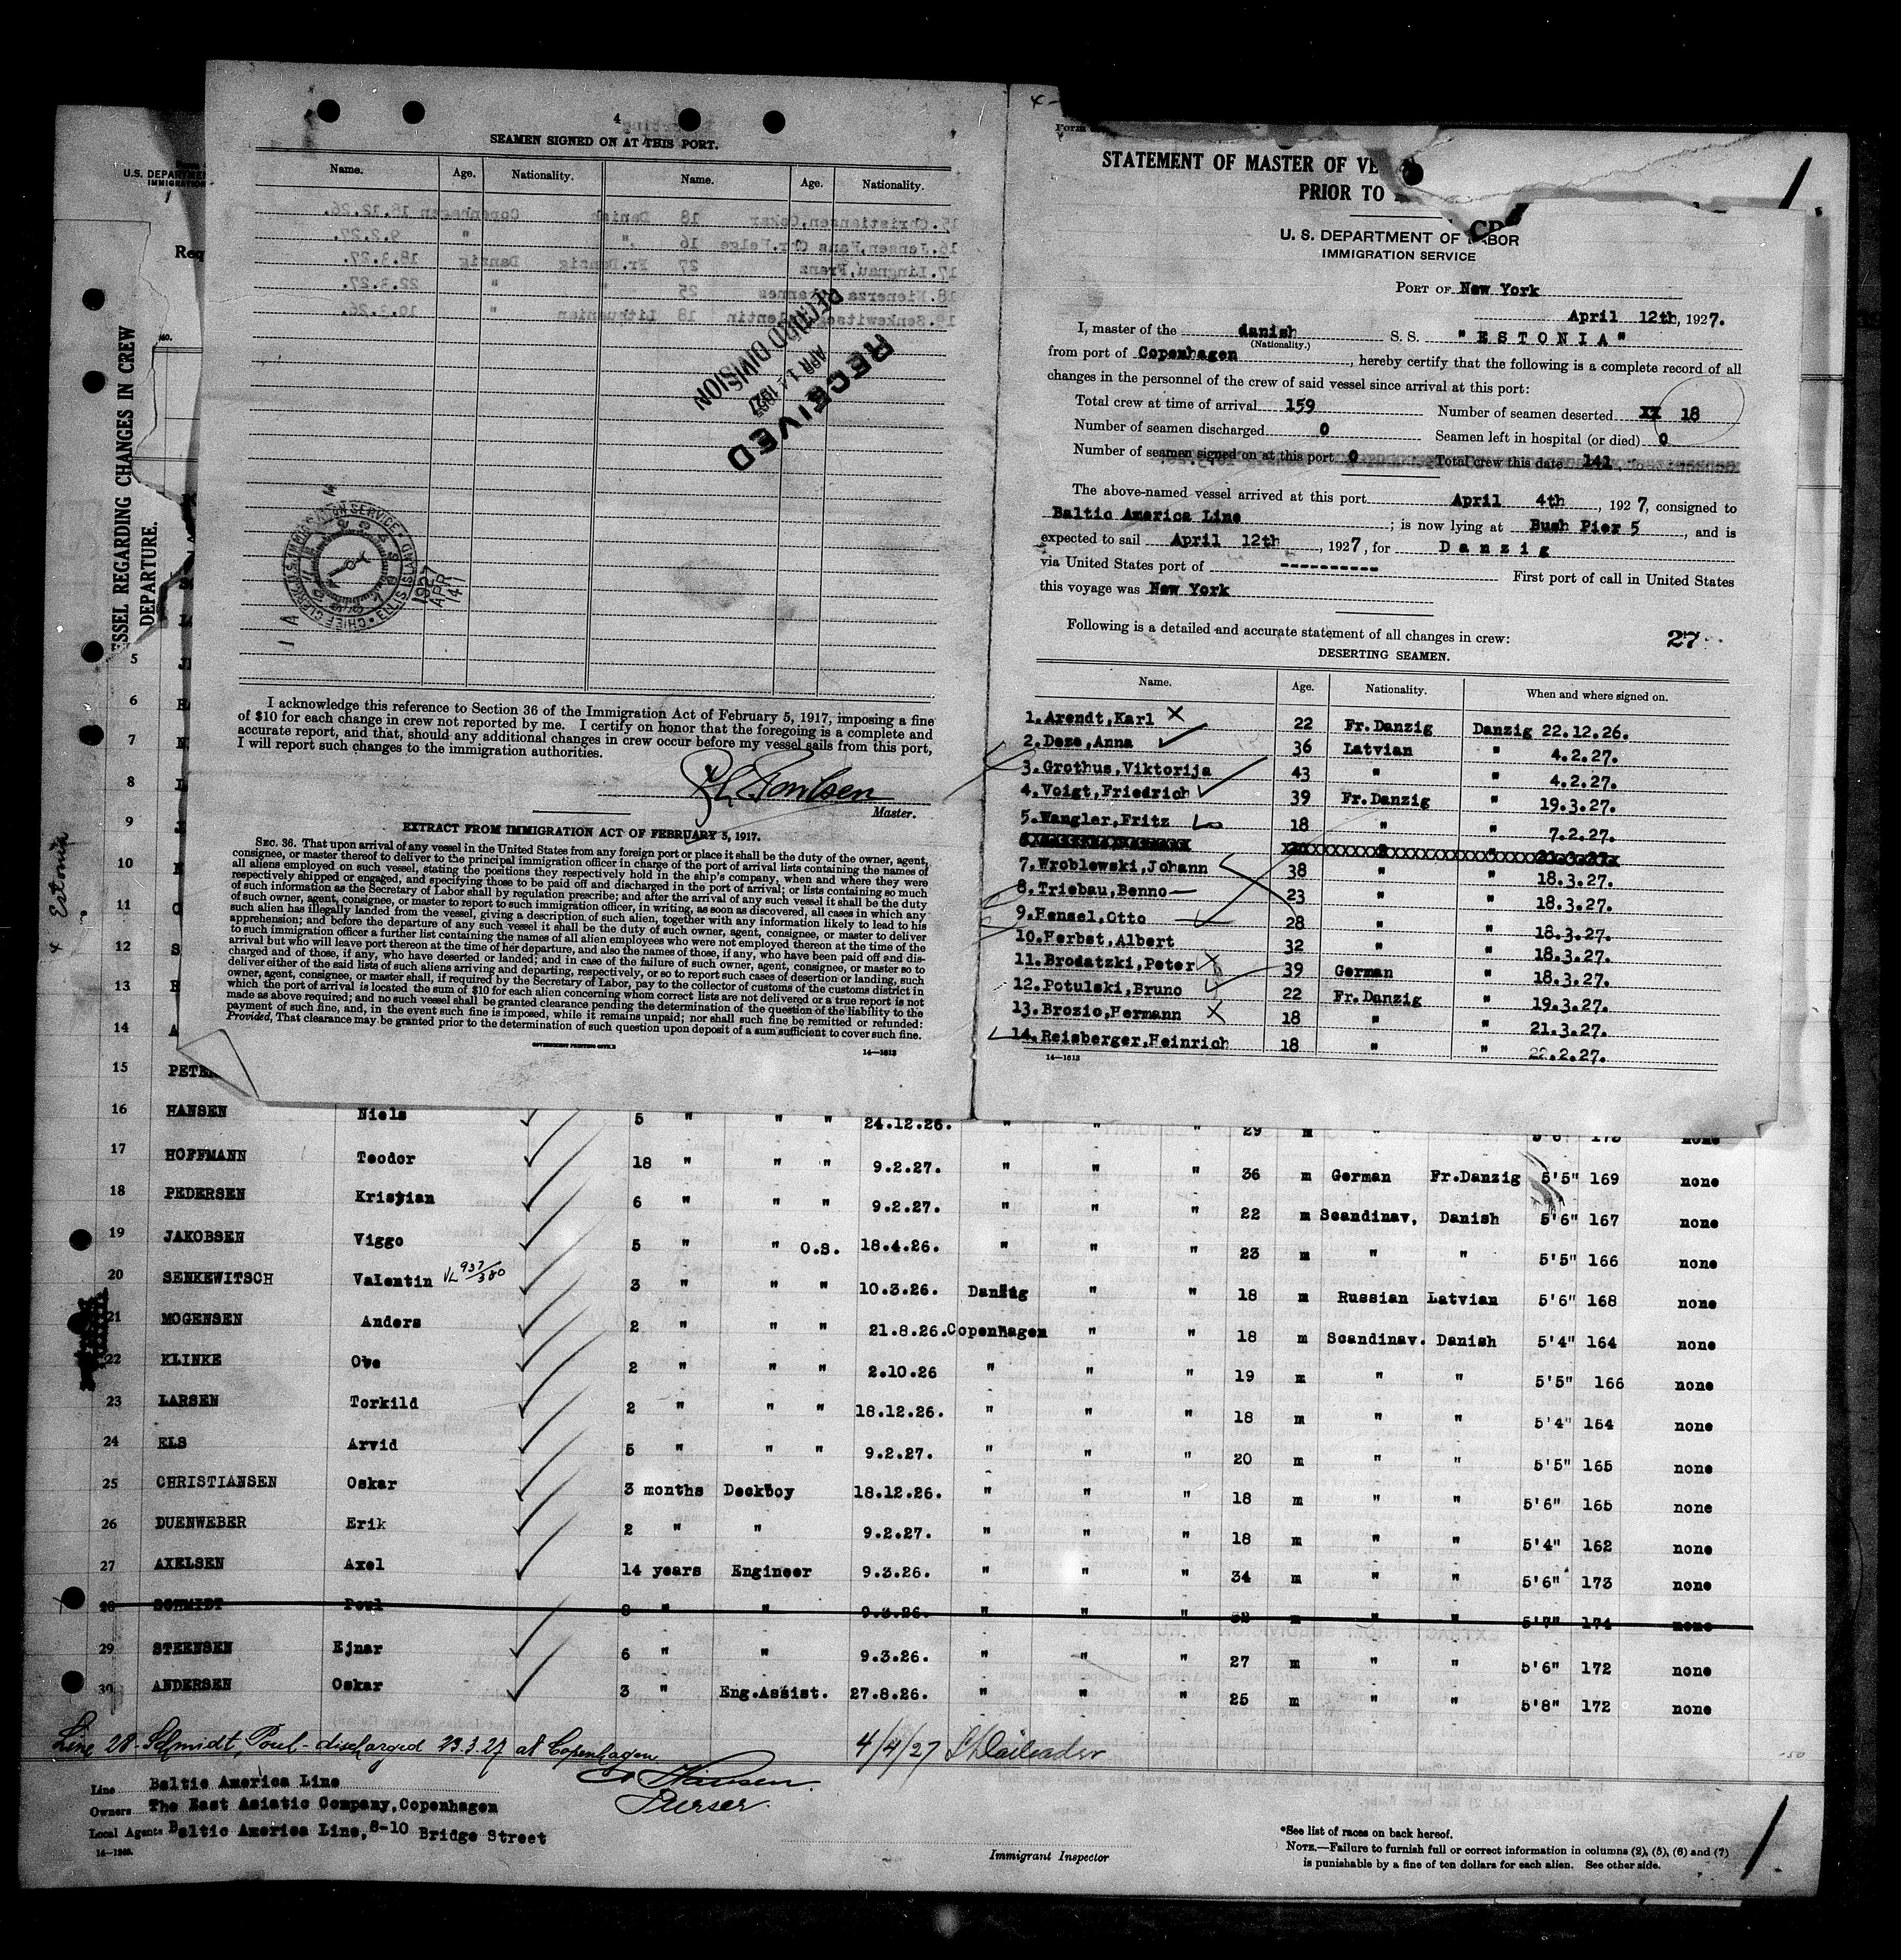 4
SEAMEN SIGNED ON AT THIS PORT.
Name. Age. Nationality. Name. Age. Nationality.
15.Christiansen,Oskar 18 Danish Copenhagen 18.12.26.
16.Jensen,Hans Chr.Helge 16 " " 9.2.27.
17.Lingnau,Franz 27 Fr.Danzig Danzig 18.3.27.
25 " " 22.3.27.
19.Senkewitsch,Valentin 18 Lithuanian " 10.3.26.
RECEIVED
APR 14 1927
RECORD DIVISION
CHIEF CLERK U.S. IMMIGRATION SERVICE ELLIS ISLAND
1927
APR
14
I acknowledge this reference to Section 36 of the Immigration Act of February 5, 1917, imposing a fine
of $10 for each change in crew not reported by me. I certify on honor that the foregoing is a complete and
accurate report, and that, should any additional changes in crew occur before my vessel sails from this port,
I will report such changes to the immigration authorities.
Poulsen
Master.
EXTRACT FROM IMMIGRATION ACT OF FEBRUARY 5, 1917.
SEC. 36. That upon arrival of any vessel in the United States from any foreign port or place it shall be the duty of the owner, agent,
consignee, or master thereof to deliver to the principal immigration officer in charge of the port of arrival lists containing the names of
all aliens employed on such vessel, stating the positions they respectively hold in the ship's company, when and where they were
respectively shipped or engaged, and specifying those to be paid off and discharged in the port of arrival; or lists containing so much
of such information as the Secretary of Labor shall by regulation prescribe; and after the arrival of any such vessel it shall be the duty
of such owner, agent, consignee, or master to report to such immigration officer, in writing, as soon as discovered, all cases in which any
such alien has illegally landed from the vessel, giving a description of such alien, together with any information likely to lead to his
apprehension; and before the departure of any such vessel it shall be the duty of such owner, agent, consignee, or master to deliver
to such immigration officer a further list containing the names of all alien employees who were not employed thereon at the time of the
arrival but who will leave port thereon at the time of her departure, and also the names of those, if any, who have been paid off and dis-
charged and of those, if any, who have deserted or landed; and in case of the failure of such owner, agent, consignee, or master so to
deliver either of the said lists of such aliens arriving and departing, respectively, or so to report such cases of desertion or landing, such
owner, agent, consignee, or master shall, if required by the Secretary of Labor, pay to the collector of customs of the customs district in
which the port of arrival is located the sum of $10 for each alien concerning whom correct lists are not delivered or a true report is not
made as above required; and no such vessel shall be granted clearance pending the determination of the question of the liability to the
payment of such fine, and, in the event such fine is imposed, while it remains unpaid; nor shall such fine be remitted or refunded:
Provided, That clearance may be granted prior to the determination of such question upon deposit of a sum sufficient to cover such fine.
GOVERNMENT PRINTING OFFICE 14—1613
Form
STATEMENT OF MASTER OF VE
PRIOR TO
U. S. DEPARTMENT OF LABOR
IMMIGRATION SERVICE
PORT OF New York
April 12th, 1927.
I, master of the danish S. S. "ESTONIA"
(Nationality.)
from port of Copenhagen, hereby certify that the following is a complete record of all
changes in the personnel of the crew of said vessel since arrival at this port:
Total crew at time of arrival 159 Number of seamen deserted XX 18
Number of seamen discharged 0 Seamen left in hospital (or died) 0
Number of seamen signed on at this port 0 Total crew this date 141
The above-named vessel arrived at this port April 4th, 1927, consigned to
Baltic America Line; is now lying at Bush Pier 5, and is
expected to sail April 12th, 1927, for Danzig
via United States port of ---------- First port of call in United States
this voyage was New York
Following is a detailed and accurate statement of all changes in crew: 27
DESERTING SEAMEN.
Name. Age. Nationality. When and where signed on.
1.Arendt,Karl X 22 Fr.Danzig Danzig 22.12.26.
2.Deze,Anna 36 Latvian " 4.2.27.
3.Grothus,Viktorija 43 " " 4.2.27.
4.Voigt,Friedrich 39 Fr.Danzig " 19.3.27.
5.Wangler,Fritz 18 " " 7.2.27.
7.Wroblewski,Johann 38 " " 18.3.27.
8.Triebau,Benno 23 " " 18.3.27.
9.Hensel,Otto 28 " " 18.3.27.
10.Herbst,Albert 32 " " 18.3.27.
11.Brodatzki,Peter X 39 German " 18.3.27.
12.Potulski,Bruno 22 Fr.Danzig " 19.3.27.
13.Brozio,Hermann X 18 " " 21.3.27.
14.Reisberger,Heinrich 18 " " 22.2.27.
14—1613
U.S. DEPARTME
IMMIGRATION
Req
ESSEL REGARDING CHANGES IN CREW
DEPARTURE.
x Estonia
5
6
7
8
9
10
11
12
13
14
15 PETE
16 HANSEN Niels 5 " " " 24.12.26. " " " 29 m " none
17 HOFFMANN Teodor 18 " " " 9.2.27. " " " 36 m German Fr.Danzig 5'5" 169 none
18 PEDERSEN Kristian 6 " " " 9.2.27. " " " 22 m Scandinav. Danish 5'6" 167 none
19 JAKOBSEN Viggo 5 " " O.S. 18.4.26. " " " 23 m " " 5'5" 166 none
20 SENKEWITSCH Valentin VL 937/380 3 " " " 10.3.26. Danzig " " 18 m Russian Latvian 5'6" 168 none
21 MOGENSEN Anders 2 " " " 21.8.26. Copenhagen " " 18 m Scandinav. Danish 5'4" 164 none
22 KLINKE Ove 2 " " " 2.10.26 " " " 19 m " " 5'5" 166 none
23 LARSEN Torkild 2 " " " 18.12.26. " " " 18 m " " 5'4" 164 none
24 ELS Arvid 5 " " " 9.2.27. " " " 20 m " " 5'5" 165 none
25 CHRISTIANSEN Oskar 3 months Deckboy 18.12.26. " " " 18 m " " 5'6" 165 none
26 DUENWEBER Erik 2 " " 9.2.27. " " " 18 m " " 5'4" 162 none
27 AXELSEN Axel 14 years Engineer 9.3.26. " " " 34 m " " 5'6" 173 none
28 SCHMIDT Poul 8 " " 9.3.26. " " " 32 m " " 5'7" 174 none
29 STEENSEN Ejnar 6 " " 9.3.26. " " " 27 m " " 5'6" 172 none
30 ANDERSEN Oskar 3 " Eng.Assist. 27.8.26. " " " 25 m " " 5'8" 172 none
Line 28 - Schmidt, Poul - discharged 23.3.27 at Copenhagen 4/4/27
Hansen.
Purser.
Line Baltic America Line
Owners The East Asiatic Company, Copenhagen
Local Agents Baltic America Line, 8-10 Bridge Street
14—1240.
Immigrant Inspector
*See list of races on back hereof.
NOTE.—Failure to furnish full or correct information in columns (2), (5), (6) and (7)
is punishable by a fine of ten dollars for each alien. See other side.